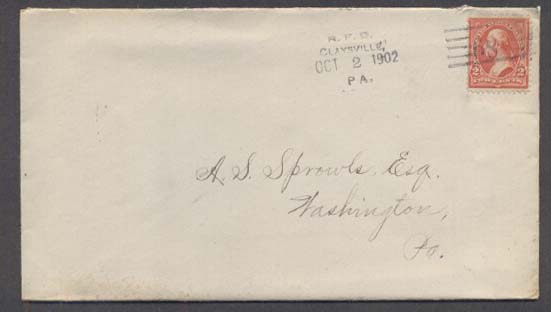 R. F. D.
CLAYSVILLE,
OCT 2 1902
PA.
2 2
TWO CENTS
A. S. Sprowls, Esq.
Washington,
Pa.